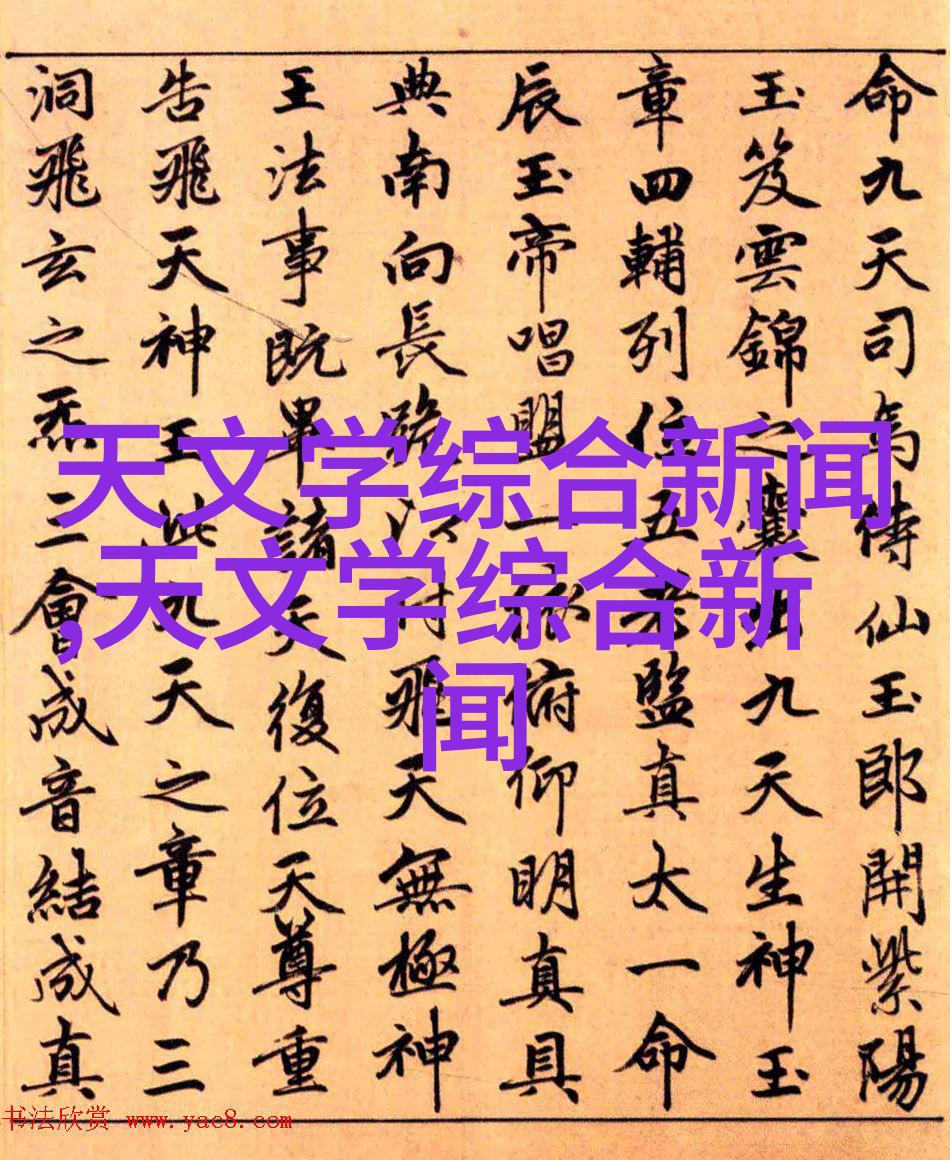 命九天司馬侍仙玉郎開紫陽
玉笈雲錦之囊出九天生神玉
章四輔列位五老監真太一命
辰玉帝唱盟一俯仰明真具
典南向長跪付飛天無極神
王法事既畢諸天復位天尊重
告飛天神王此九天之章乃三
洞飛玄之炁三會成音結成真
天文学综合新闻
,天文学综合新
闻
书法欣赏 www.yac8.com